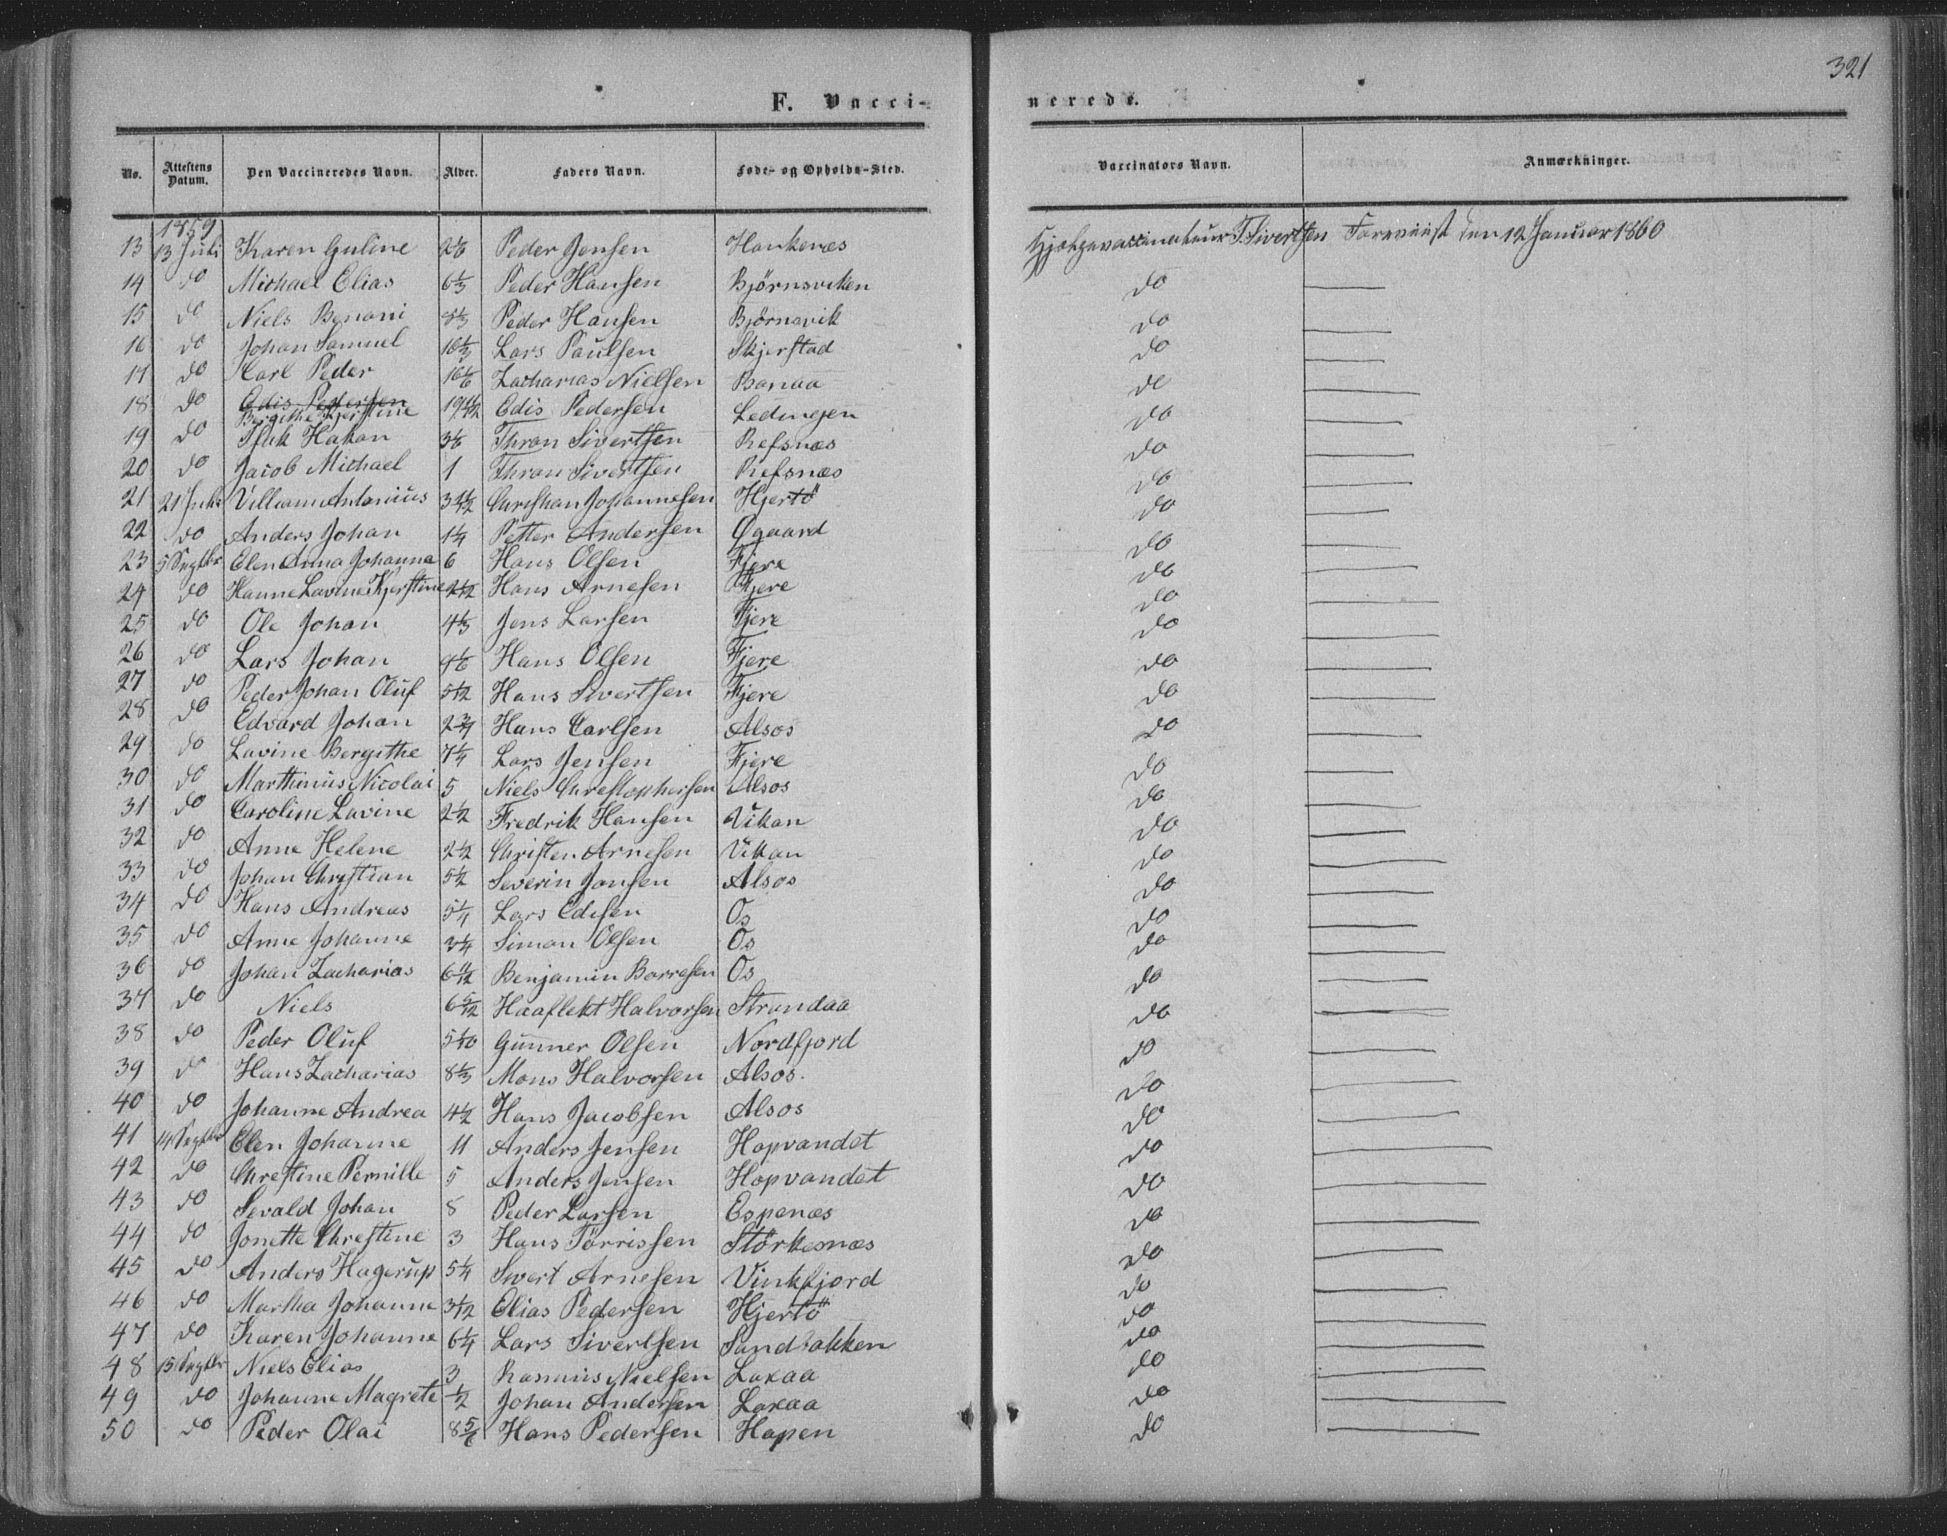 321
F. Vaccinerede.
No. Attestens Datum. Den Vaccineredes Navn. Alder. Faders Navn. Føde- og Opholds-Sted. Vaccinators Navn. Anmærkninger.
1859
13 13 Juli Karen Guline 2 1/6 Peder Jensen Hankenæs Hjelpevaccinateur T. Sivertsen Foreviist den 12 Januar 1860
14 do Michael Elias 6 1/3 Peder Hansen Bjørnsviken do
15 do Niels Benoni 8 1/3 Peder Hansen Bjørnsvik do
16 do Johan Samuel 10 1/3 Lars Paulsen Skjerstad do
17 do Karl Peder 10 1/6 Zacharias Nielsen Bonaa do
18 do Edis Pedersen Bergithe Kjerstine 19 Edis Pedersen Ledingen do
19 do Hakon 3 1/6 Thron Sivertsen Refsnæs do
20 do Jacob Michael 1 Thron Sivertsen Refsnæs do
21 21 Juli Villiam Antonius 3 Christian Johannesen Hjertö do
22 do Anders Johan 1 1/4 Petter Andersen Øgaard do
23 5 Septbr Elen Anna Johanna 6 Hans Olsen Fjere do
24 do Hanne Lavine Kjerstine 2 1/12 Hans Arnesen Fjere do
25 do Ole Johan 4 1/3 Jens Larsen Fjere do
26 do Lars Johan 4 1/6 Hans Olsen Fjere do
27 do Peder Johan Oluf 5 1/2 Hans Sivertsen Fjere do
28 do Edvard Johan 2 3/4 Hans Carlsen Alsos do
29 do Lavine Bergithe 7 1/4 Lars Jensen Fjere do
30 do Marthinus Nicolai 5 Niels Christophersen Alsos do
31 do Caroline Lavine 2 1/2 Fredrik Hansen Vikan do
32 do Anne Helene 2 1/2 Christen Arnesen Vikan do
33 do Johan Christian 5 1/2 Severin Jonsen Alsos do
34 do Hans Andreas 5 1/4 Lars Edisen Os do
35 do Anne Johanne 3 1/4 Simon Olsen Os do
36 do Johan Zacharias 6 Benjamin Borresen Os do
37 do Niels 6 5/12 Haaflekt Halvorsen Strandaa do
38 do Peder Oluf 5 1/10 Gunner Olsen Nordfjord do
39 do Hans Zacharias 8 1/3 Mons Halvorsen Alsos. do
40 do Johanne Andrea 4 1/2 Hans Jacobsen Alsos do
41 14 Septbr Elen Johanne 11 Anders Jensen Hopvandet do
42 do Christine Pernille 5 Anders Jensen Hopvandet do
43 do Sevald Johan 8 Peder Larsen Espenæs do
44 do Jonette Christine 3 Hans Tørrissen Størkesnæs do
45 do Anders Hagerup 5 1/4 Sivert Arnesen Vinkfjord do
46 do Martha Johanne 3 1/12 Elias Pedersen Hjertö do
47 do Karen Johanne 6 1/4 Lars Sivertsen Sandbakken do
48 15 Septbr Niels Elias 3 Rasmus Nielsen Laxaa do
49 do Johanne Magrete 1/2 Johan Andersen Laxaa do
50 do Peder Olai 8 5/6 Hans Pedersen Hopen do